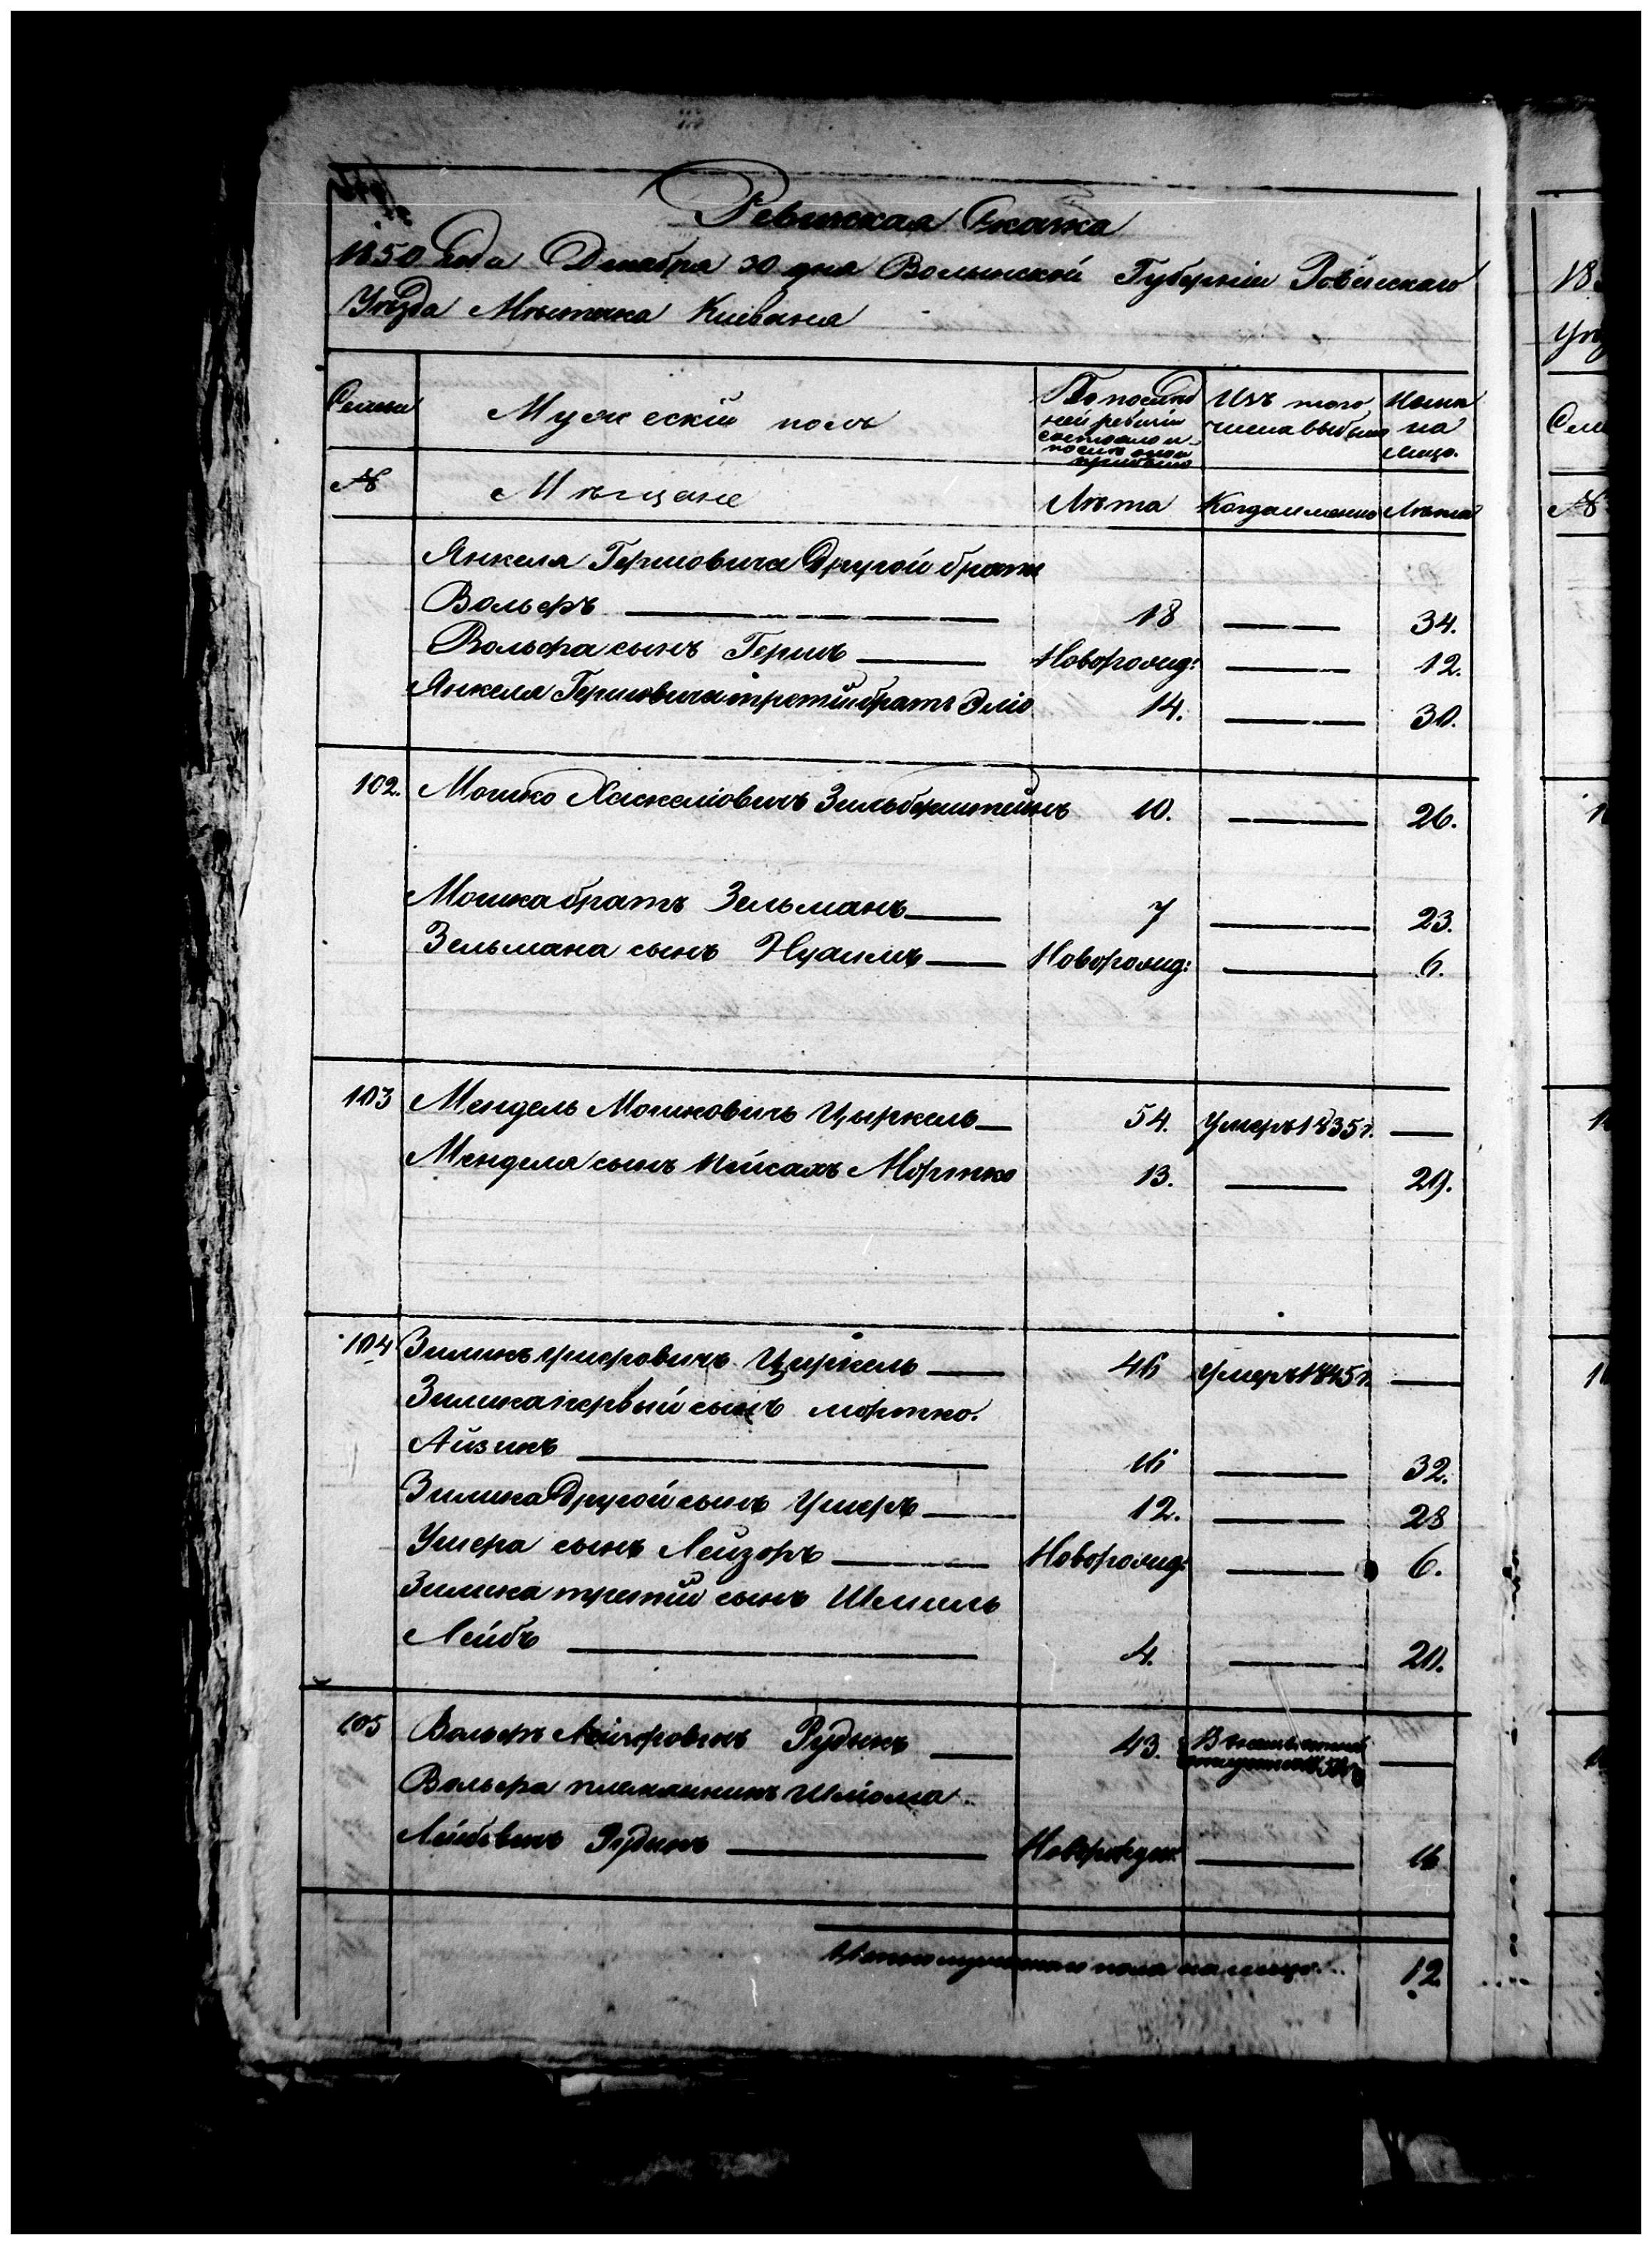 Ревижская Скажа
1850 Года Декабря 30 дня Волынской Губерніи Ровенскаго
Уѣзда Мѣстечка Клеваня
Семьи
Мужескій полъ
По послѣд
ней ревизіи
состояло и
послѣ оной
прибыло
Изъ того
числа выбыло
Нынѣ
на
лицо.
№
Мѣщане
Лѣта
Когда именно
Лѣта
Янкеля Гершовича Другой братъ
Вольфъ 18 34.
Вольфа сынъ Гершъ Новорожд: 12.
Янкеля Гершовича третій братъ Эліо 14. 30.
102. Мошко Хаскеліовичъ Зильберштейнъ 10. 26.
Мошка братъ Зельманъ 7 23.
Зельмана сынъ Новорожд: 6.
103 Мендель Мошковичъ Цыркель 54. Умеръ 1835 г.
Менделя сынъ Пейсахъ Мортко 13. 29.
104 Зимель Цыркель 46 Умеръ 1845 г.
первый сынъ мортко.
Айзикъ 16 32.
Другой сынъ Ушеръ 12. 28
Ушера сынъ Лейзоръ Новорожд: 6.
третій сынъ Шмиль
Лейбъ 4. 20.
105 Вольфъ Рудыкъ 43.
Вольфа племянникъ Шліома
Лейбовичъ Рудыкъ Новорожден: 16
Итого мужескаго пола на лицо... 12
18
Уѣз
Сем
№